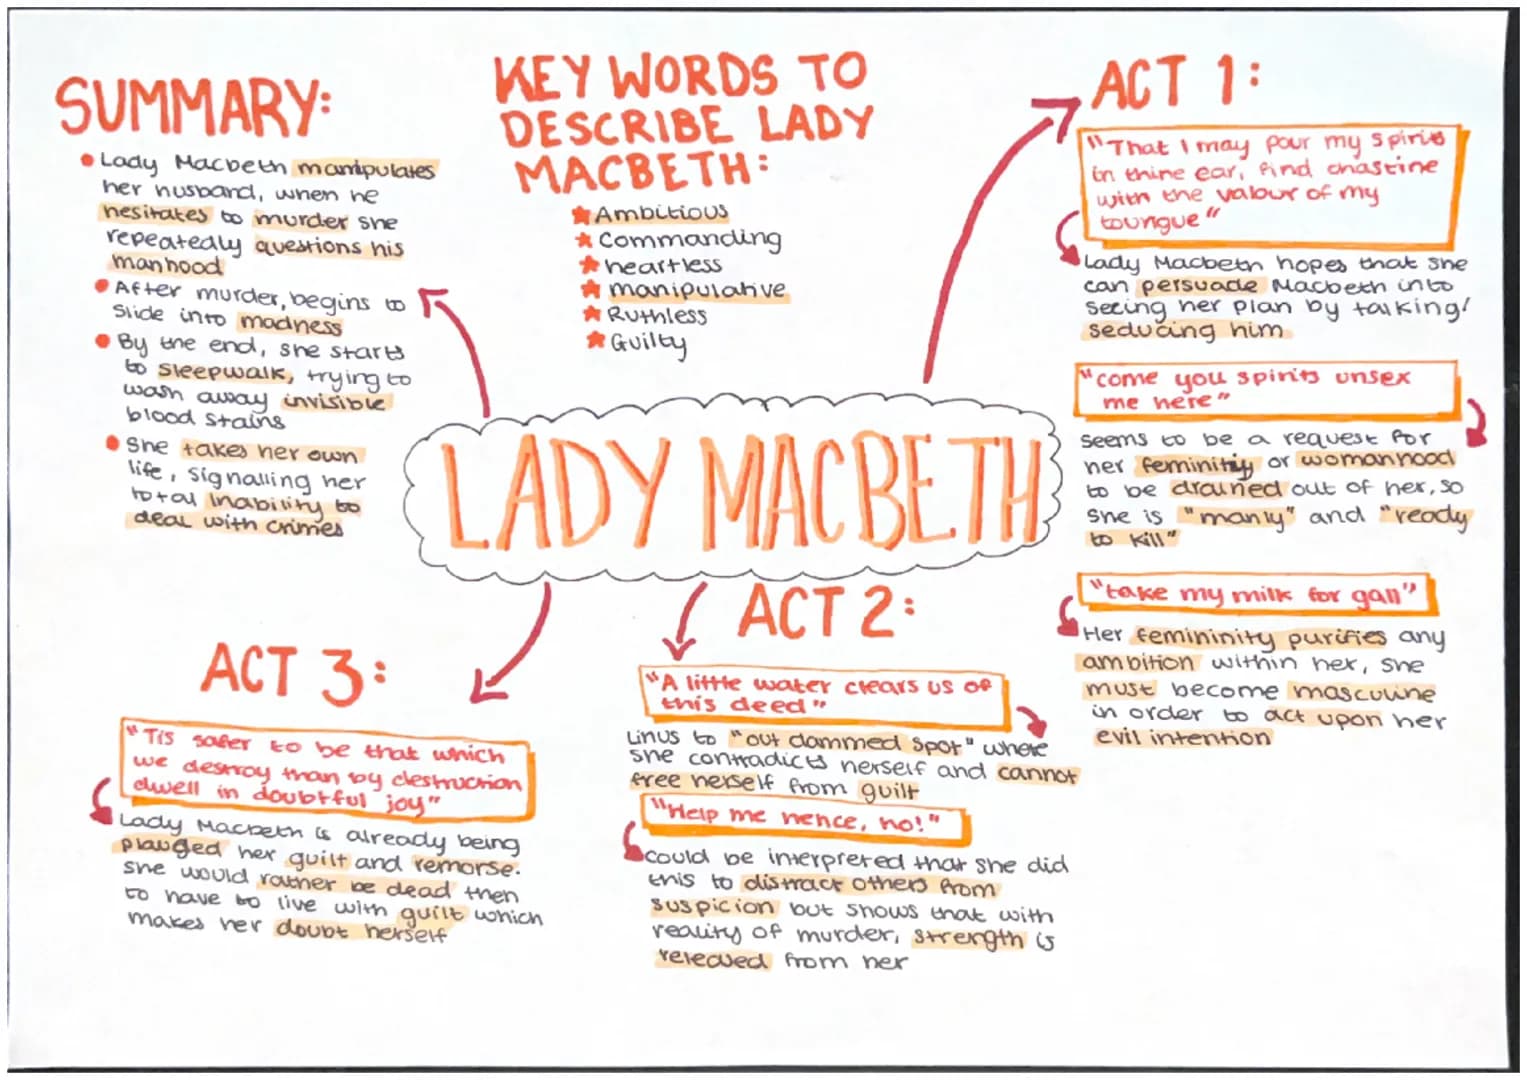 SUMMARY:
• Lady Macbeth manipulates
her husband, when he
hesitates to murder she
repeatedly questions his
manhood
• After murder, begins to
slide into madness
• By the end, she starts
to sleepwalk, trying to
wash away invisible
blood stains
• She takes her own
life, signalling her
total inability to
deal with crimes
KEY WORDS TO
DESCRIBE LADY
MACBETH:
★ Ambitious
★ Commanding
★ heartless
★ manipulative
★ Ruthless
★ Guilty
LADY MACBETH
ACT 1:
"That I may pour my spirits
in thine ear, find chastine
with the valour of my
toungue"
Lady Macbeth hopes that she
can persuade Macbeth into
seeing her plan by talking/
seducing him
"come you spirits unsex
me here"
seems to be a request for
her femininity or womanhood
to be drained out of her, so
she is "manly" and "ready
to kill"
"take my milk for gall"
Her femininity purifies any
ambition within her, she
must become masculine
in order to act upon her
evil intention
ACT 2:
"A little water clears us of
this deed"
Links to "out dammed spot" where
she contradicts herself and cannot
free herself from guilt
"Help me hence, ho!"
could be interpreted that she did
this to distract others from
suspicion but shows that with
reality of murder, strength is
releaved from her
ACT 3:
"Tis safer to be that which
we destroy than by destruction
dwell in doubtful joy"
Lady Macbeth is already being
plauged her guilt and remorse.
she would rather be dead then
to have to live with guilt which
makes her doubt herself